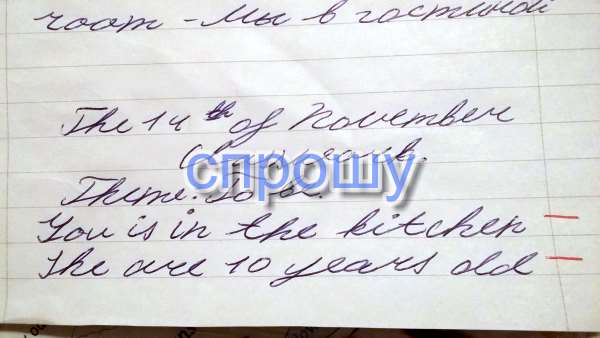 room - Мы в гостиной
The 14th of November
спрошу
Theme: To be.
You is in the kitchen
She are 10 years old